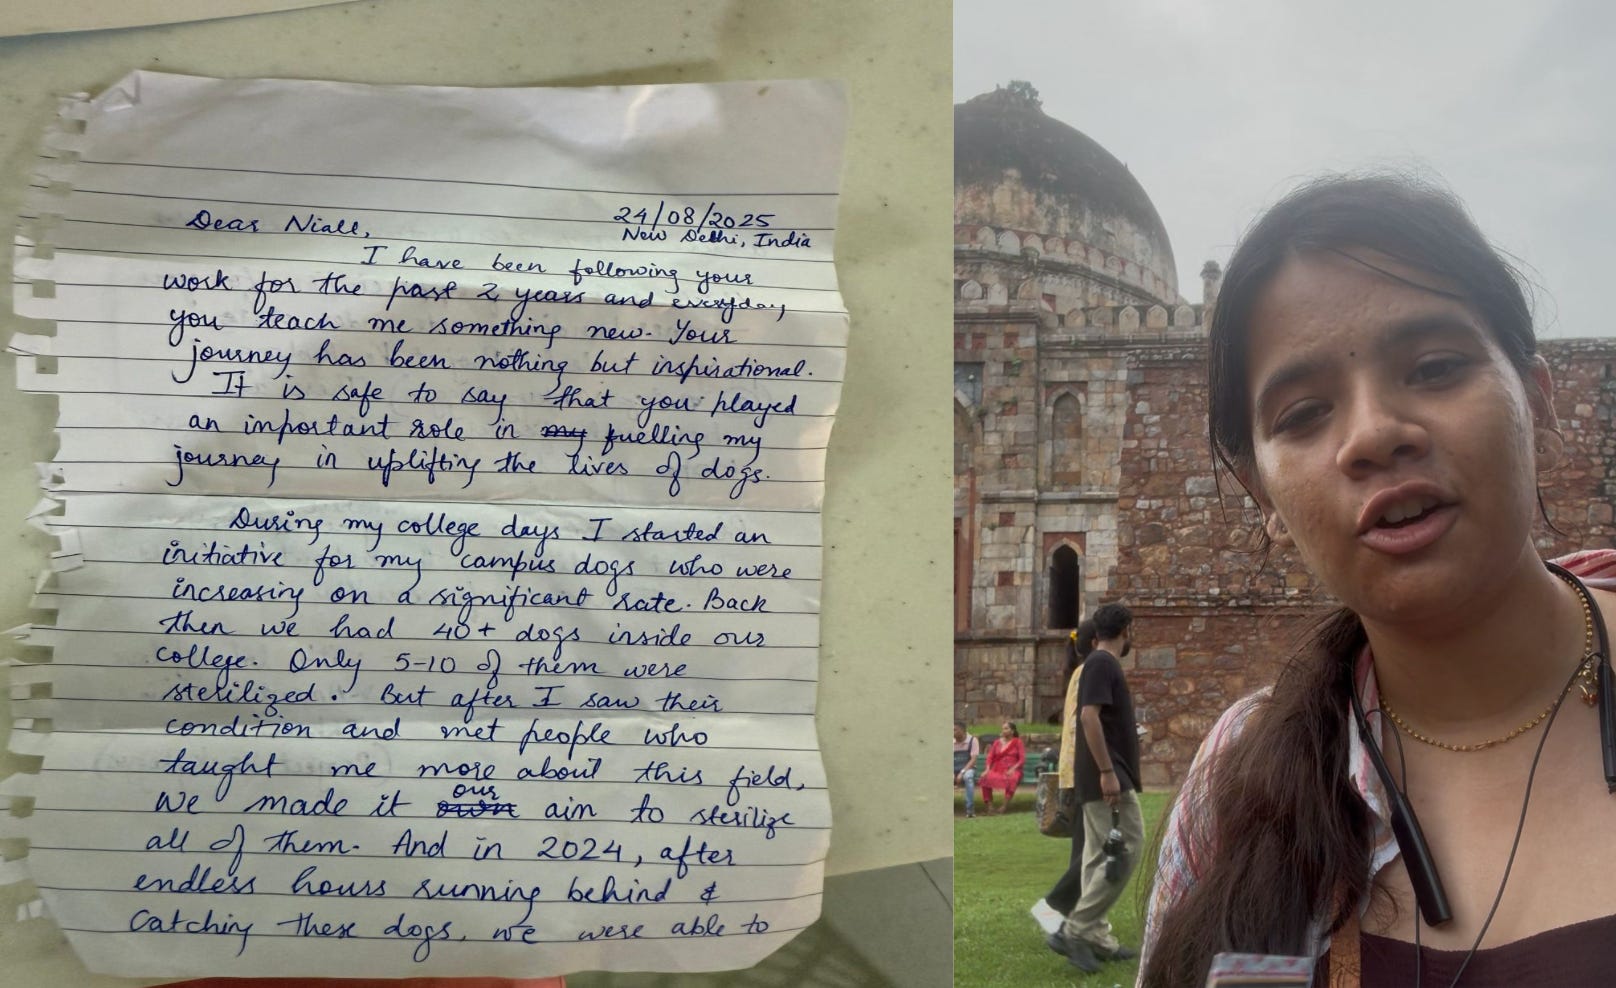 Dear Niall,
24/08/2025
New Delhi, India
I have been following your
work for the past 2 years and everyday,
you teach me something new. Your
journey has been nothing but inspirational.
It is safe to say that you played
an important role in my fuelling my
journey in uplifting the lives of dogs.
During my college days I started an
initiative for my campus dogs who were
increasing on a significant rate. Back
then we had 40+ dogs inside our
college. Only 5-10 of them were
sterilized. But after I saw their
condition and met people who
taught me more about this field,
we made it our aim to sterilize
all of them. And in 2024, after
endless hours running behind &
catching these dogs, we were able to